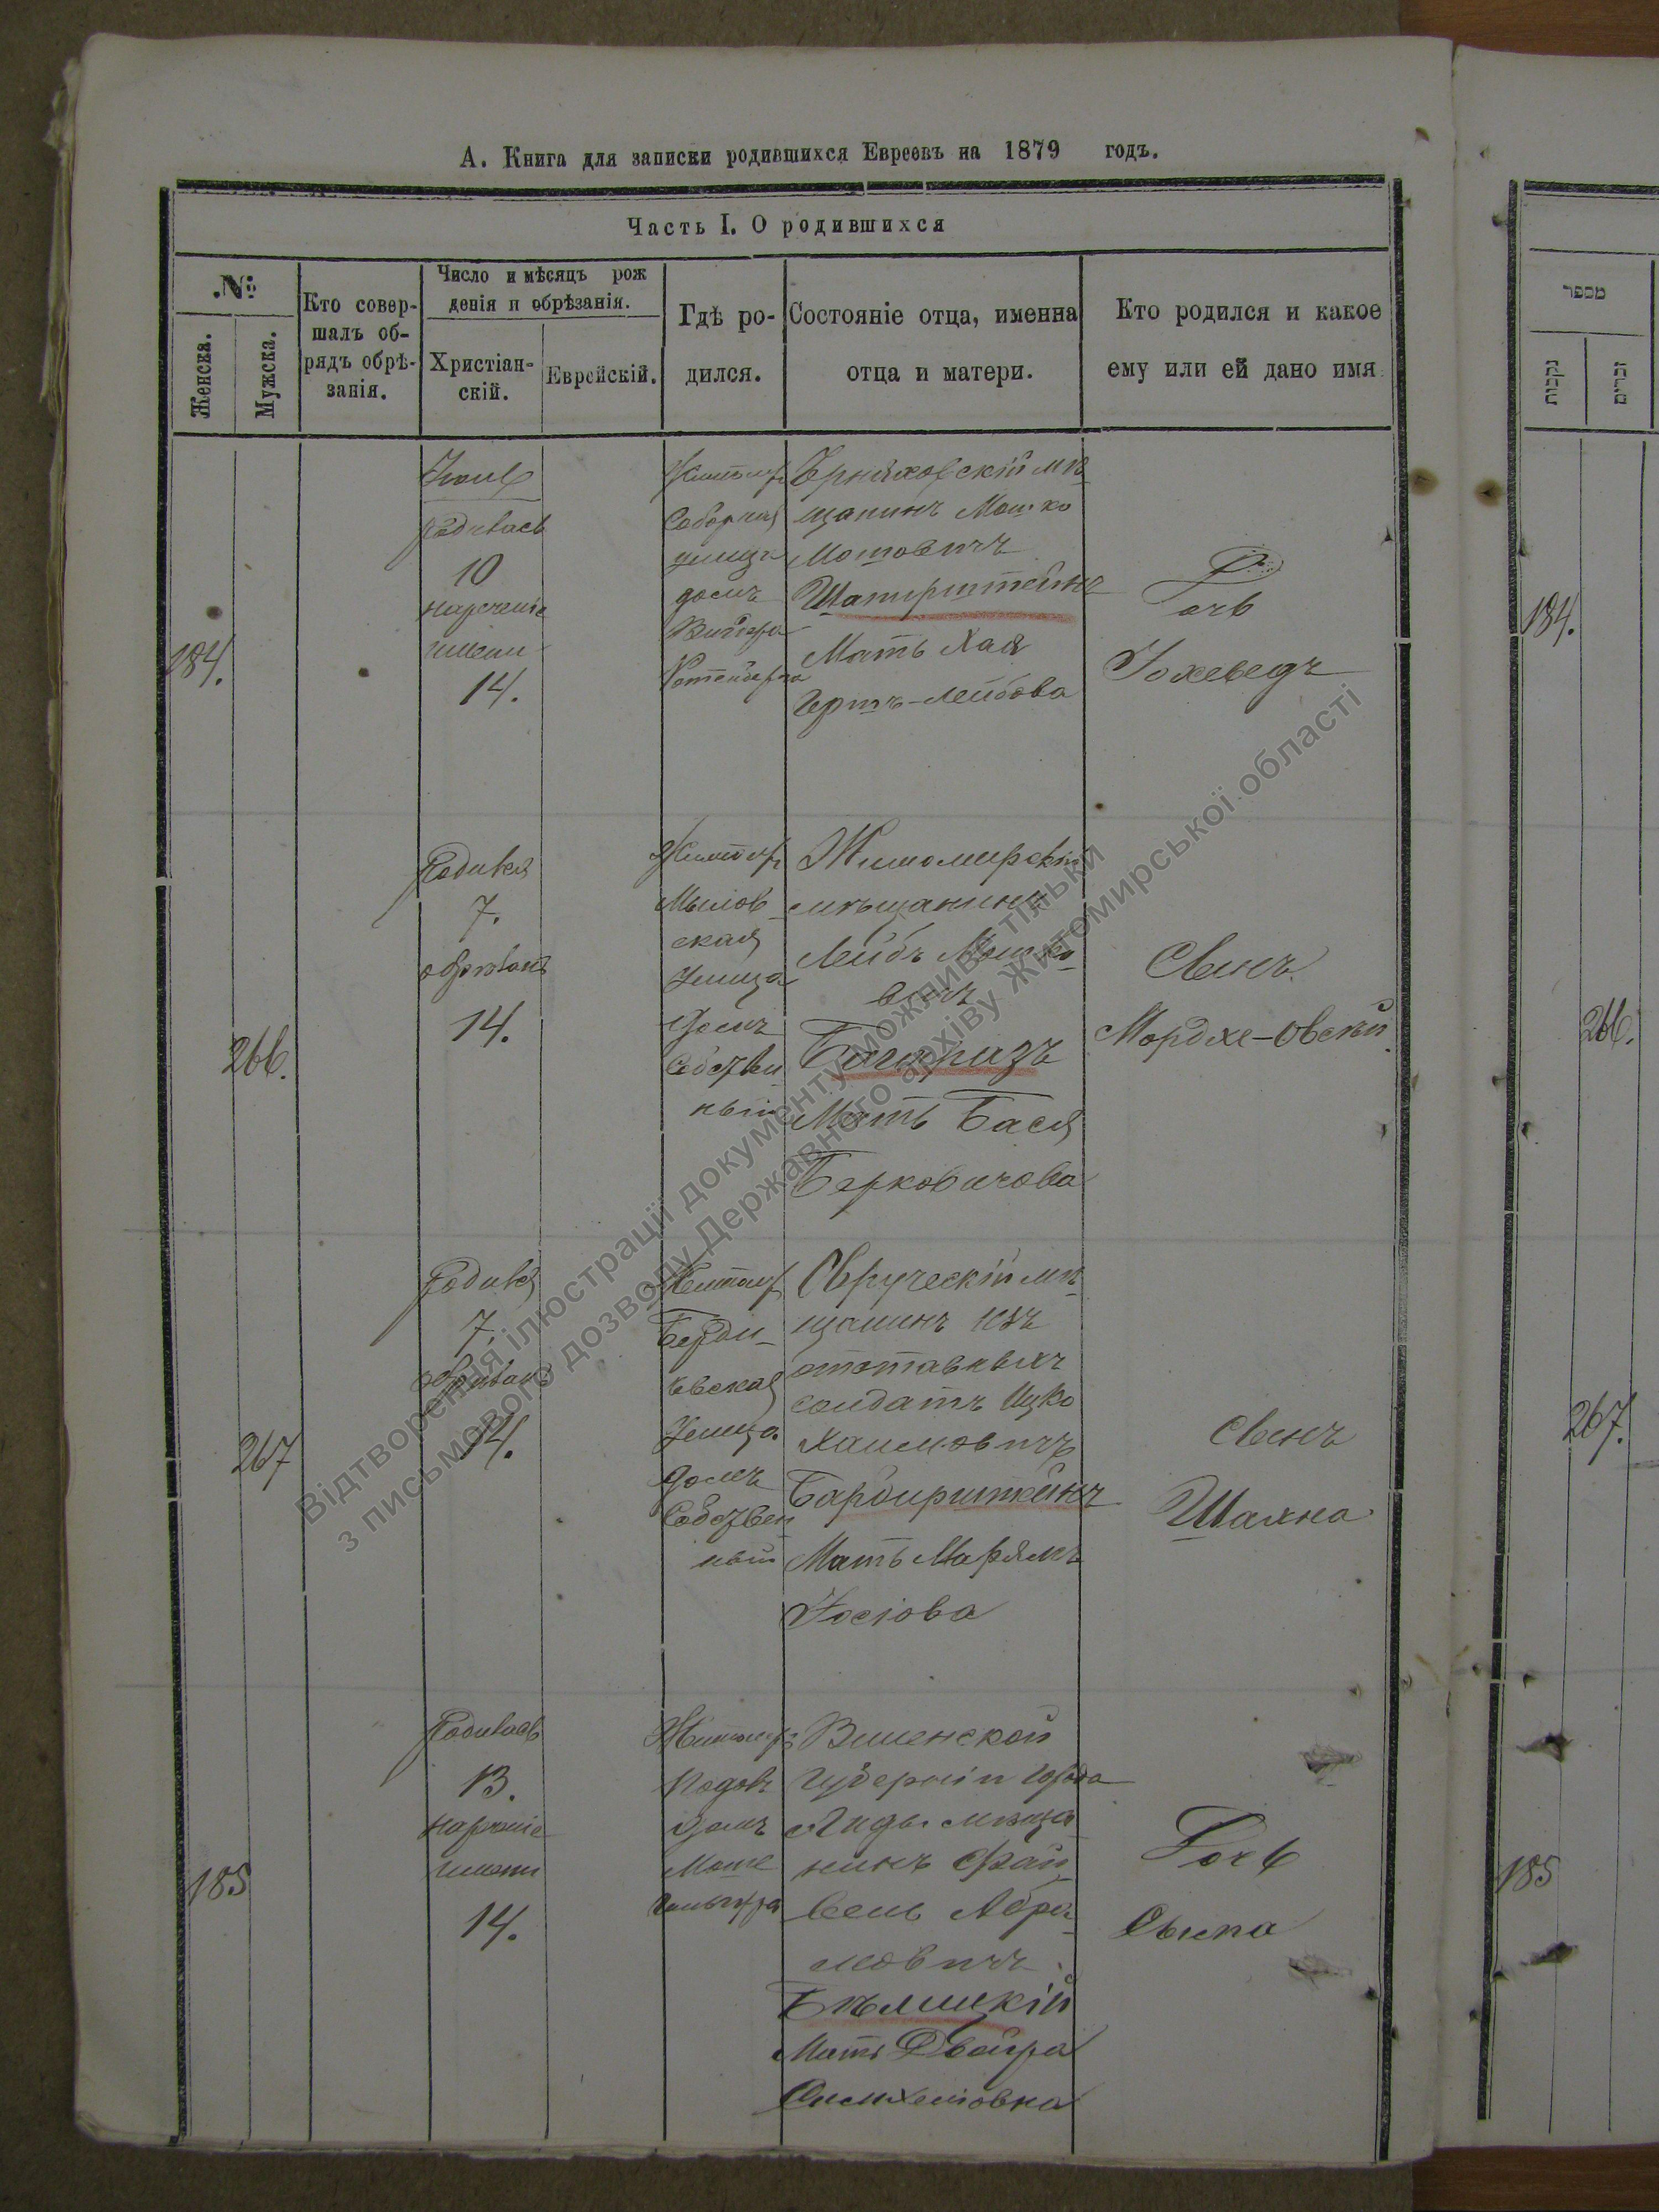 А. Книга для записки родившихся Евреевъ на 1879 годъ.
Часть I. О родившихся
№
Женска.
Мужска.
Кто совер-
шалъ об-
рядъ обрѣ-
занія.
Число и мѣсяцъ рож
денія и обрѣзанія.
Христіан-
скій.
Еврейскій.
Гдѣ ро-
дился.
Состояніе отца, именна
отца и матери.
Кто родился и какое
ему или ей дано имя
מספר
נקבות
זכרים
184.
Родилась
10
нареченіе
имени
14.
Житомир
Соборная
улица
домъ
Черняховскій мѣ-
щанинъ Мошко
Мотовичъ
Шапирштейнъ
Мать Хая
Гершъ-Лейбова
Дочь
Йохеведъ
184.
266.
Родился
7.
обрѣзанъ
14.
Житомир
Мылов
ская
Улица
Домъ
Собствен
ный
Житомирскій
мѣщанинъ
Лейбъ Мошко-
вичъ
Мать Бася
Берковичова
Сынъ
Мордхе-Овсѣй
266.
267
Родился
7.
обрѣзанъ
14.
Житомир
Берди-
чевская
Улица
домъ
Собствен
ный
Овруческій мѣ-
щанинъ изъ
отставныхъ
солдатъ Ицко
Хаимовичъ
Барбирштейнъ
Мать Марьямъ
Йосіова
Сынъ
267.
185
Родилась
13.
нареченіе
имени
14.
Житомир
домъ
Виленской
Губерніи города
Лиды мѣща-
нинъ Фай-
вель Абра-
мовичъ
Бѣлицкій
Мать Двойра
Дочь
185
Відтворення ілюстрації документу можливе тільки
з письмового дозволу Державного архіву Житомирської області